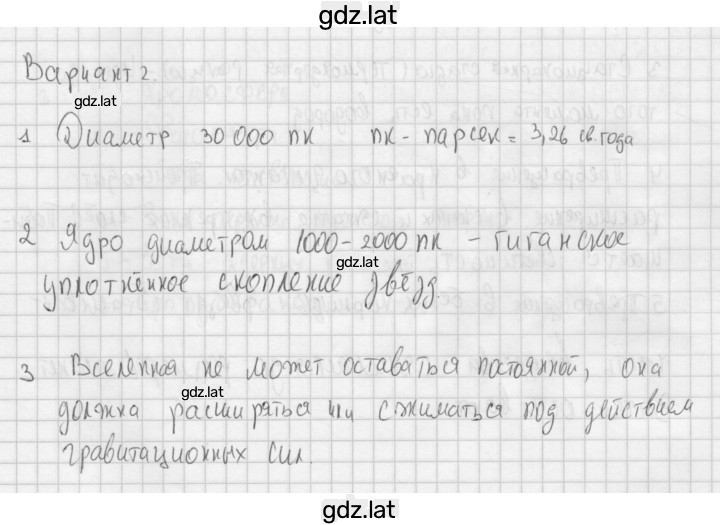 gdz.lat
Вариант 2.
gdz.lat
1 Диаметр 30 000 пк пк - парсек = 3,26 св. года
gdz.lat
2 Ядро диаметром 1000 - 2000 пк - гиганское
gdz.lat
уплотнённое скопление звёзд.
3 Вселенная не может оставаться постоянной, она
gdz.lat
должна расширяться или сжиматься под действием
гравитационных сил.
gdz.lat